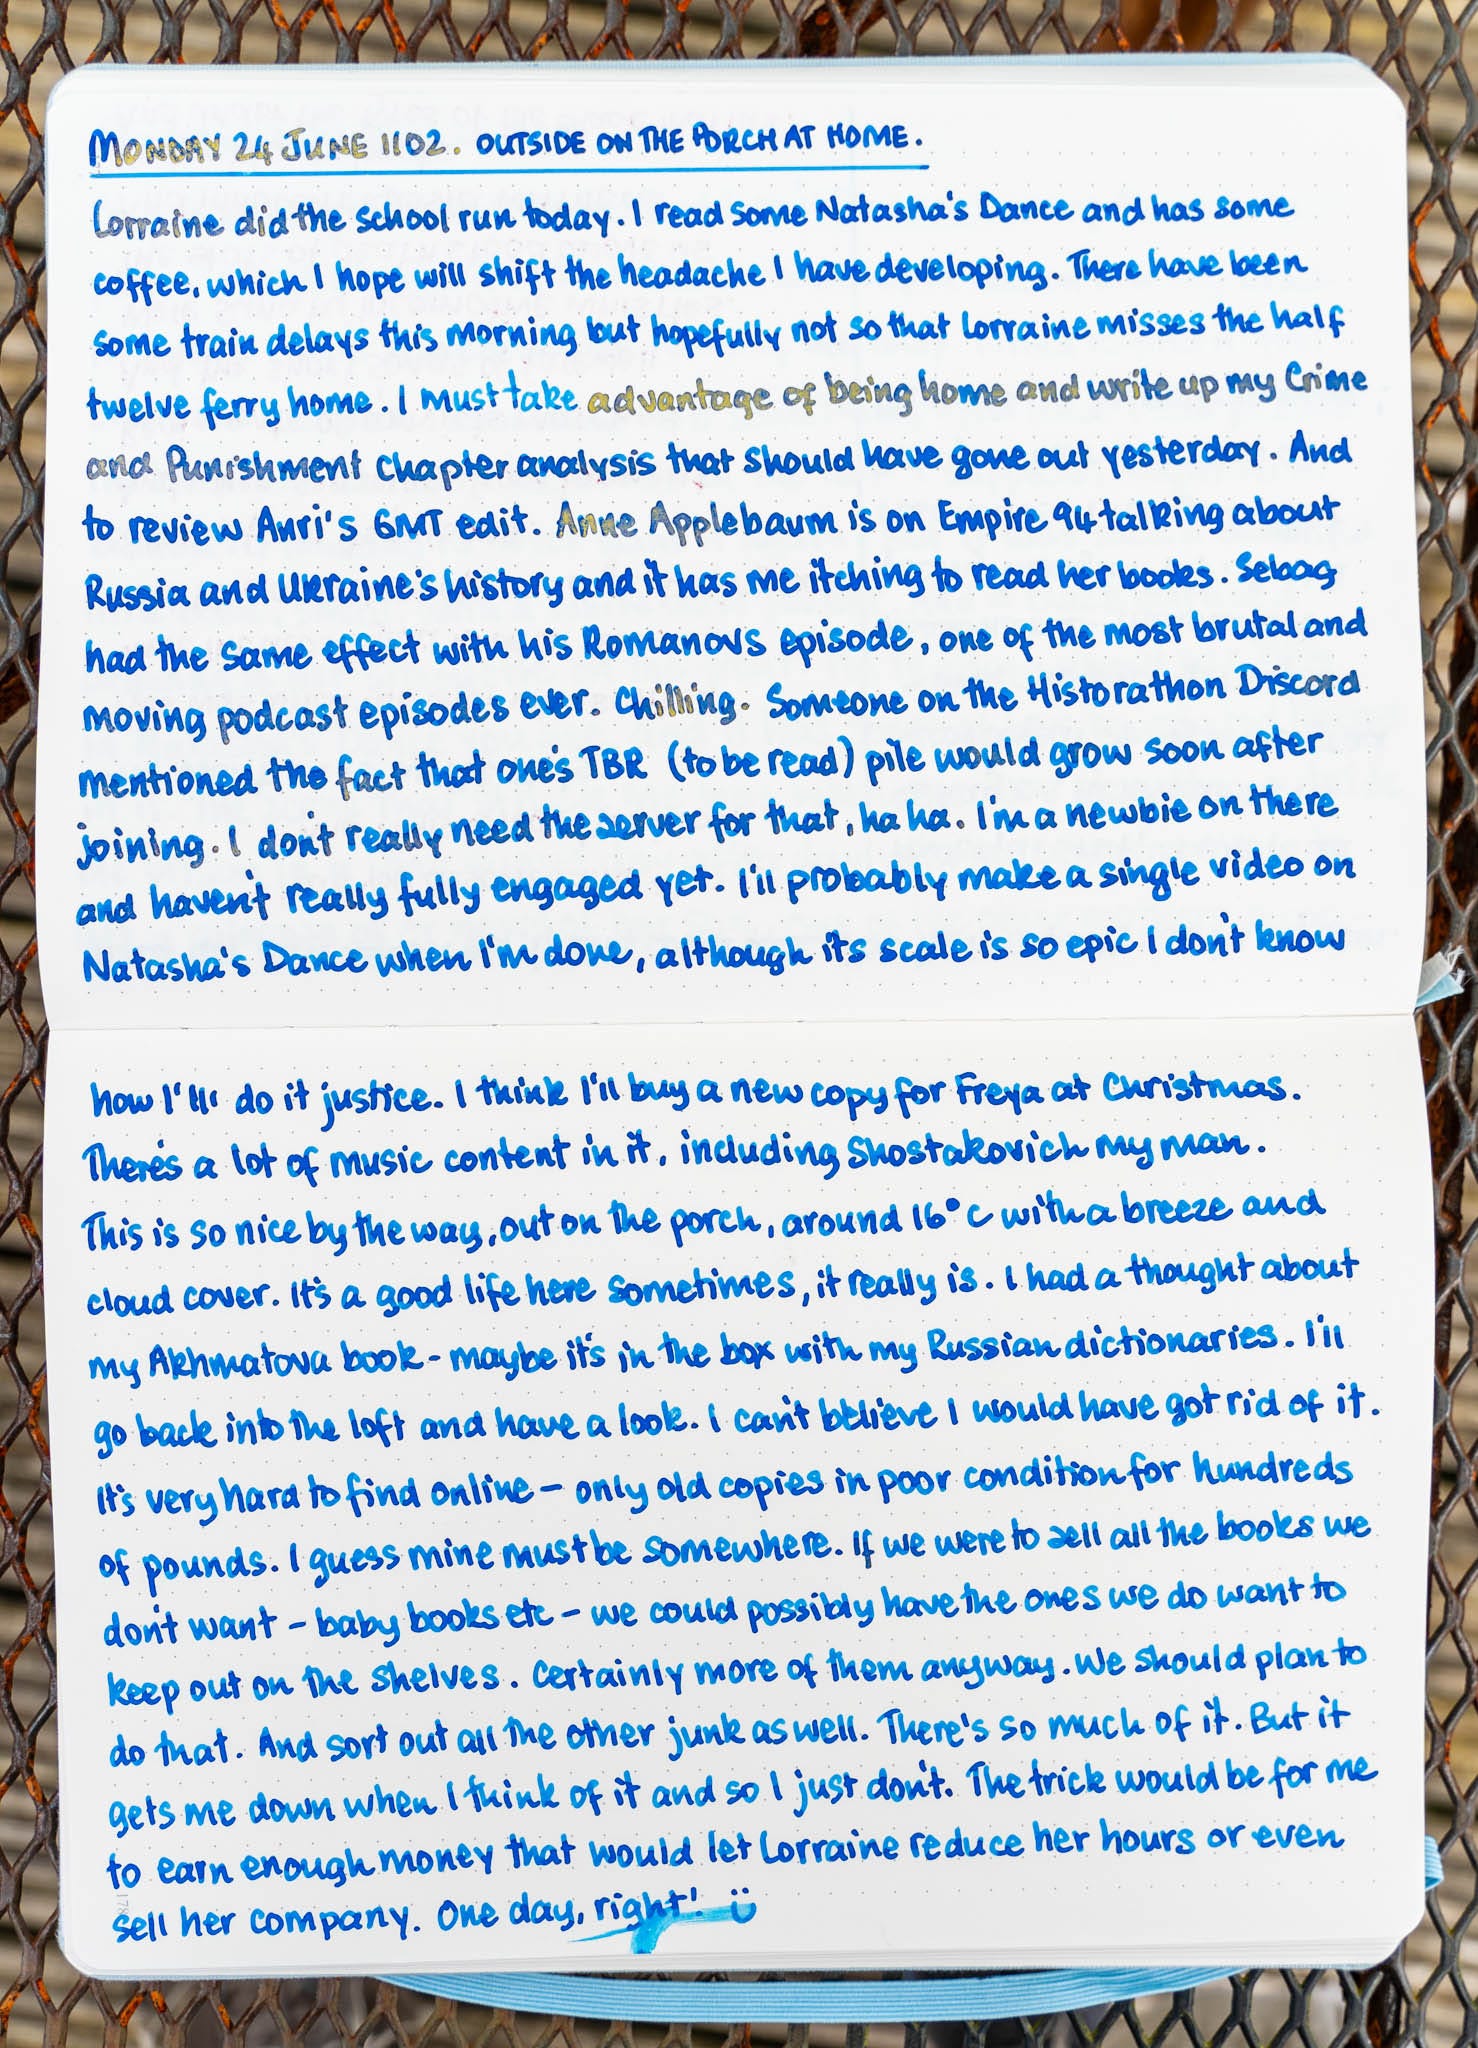 MONDAY 24 JUNE 1102. OUTSIDE ON THE PORCH AT HOME.
Lorraine did the school run today. I read some Natasha's Dance and has some
coffee, which I hope will shift the headache I have developing. There have been
some train delays this morning but hopefully not so that Lorraine misses the half
twelve ferry home. I must take advantage of being home and write up my Crime
and Punishment chapter analysis that should have gone out yesterday. And
to review Anri's GMT edit. Anne Applebaum is on Empire 94 talking about
Russia and Ukraine's history and it has me itching to read her books. Sebag
had the same effect with his Romanovs episode, one of the most brutal and
moving podcast episodes ever. Chilling. Someone on the Historathon Discord
mentioned the fact that one's TBR (to be read) pile would grow soon after
joining. I don't really need the server for that, ha ha. I'm a newbie on there
and haven't really fully engaged yet. I'll probably make a single video on
Natasha's Dance when I'm done, although its scale is so epic I don't know
how I'll do it justice. I think I'll buy a new copy for Freya at Christmas.
There's a lot of music content in it, including Shostakovich my man.
This is so nice by the way, out on the porch, around 16°c with a breeze and
cloud cover. It's a good life here sometimes, it really is. I had a thought about
my Akhmatova book - maybe it's in the box with my Russian dictionaries. I'll
go back into the loft and have a look. I can't believe I would have got rid of it.
It's very hard to find online – only old copies in poor condition for hundreds
of pounds. I guess mine must be somewhere. If we were to sell all the books we
don't want – baby books etc – we could possibly have the ones we do want to
keep out on the shelves. Certainly more of them anyway. We should plan to
do that. And sort out all the other junk as well. There's so much of it. But it
gets me down when I think of it and so I just don't. The trick would be for me
to earn enough money that would let Lorraine reduce her hours or even
sell her company. One day, right! ü
178